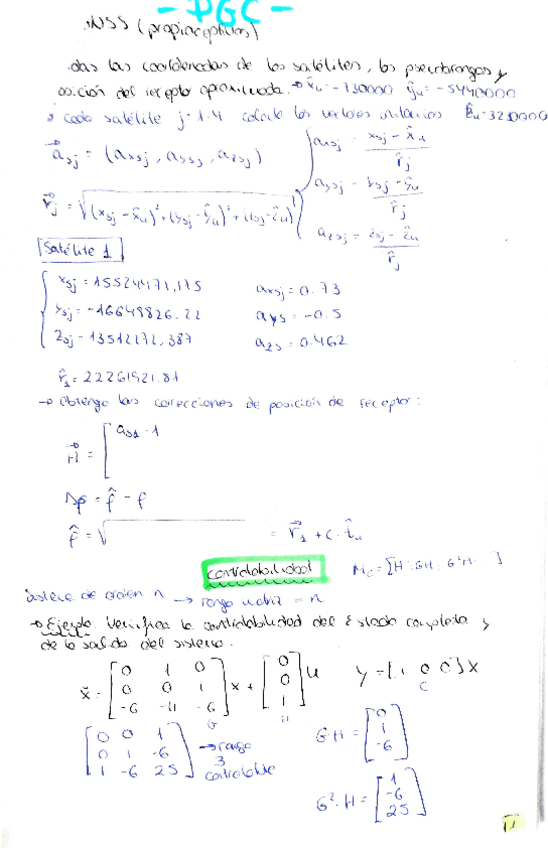 - PGC -
NSS (propioceptivos)
das las coordenadas de los satélites, los pseudorangos y
posición del receptor aproximada. → x̂u = -730000 ŷu = -5440000
cada satélite j=1-4 calculo los valores unitarios ẑu = 3230000
a⃗sj = (axsj, aysj, azsj)
axsj = (xsj - x̂u) / r̂j
aysj = (ysj - ŷu) / r̂j
azsj = (zsj - ẑu) / r̂j
r⃗j = √((xsj - x̂u)² + (ysj - ŷu)² + (zsj - ẑu)²)
Satélite 1
xsj = 15524471,175 axsj = 0.73
ysj = -16649826,22 ays = -0.5
zsj = 13512272,387 azs = 0.462
r̂1 = 22261921.81
→ Obtengo las correcciones de posición de receptor:
H⃗ = [as1 · 1
Δρ = ρ̂ - ρ
ρ̂ = √ = r⃗1 + c · t̂u
controlabilidad Mc = [H GH G²H ]
Sistema de orden n → rango matriz = n
→ Ejemplo. Verifica la controlabilidad del Estado completa y
de la salida del sistema.
ẋ = [0 1 0
0 0 1
-6 -11 -6] x + [0
0
1] u y = [1 0 0] x
G H C
[0 0 1
0 1 -6
1 -6 25] → rango
3
controlable
G·H = [0
1
-6]
G²·H = [1
-6
25]